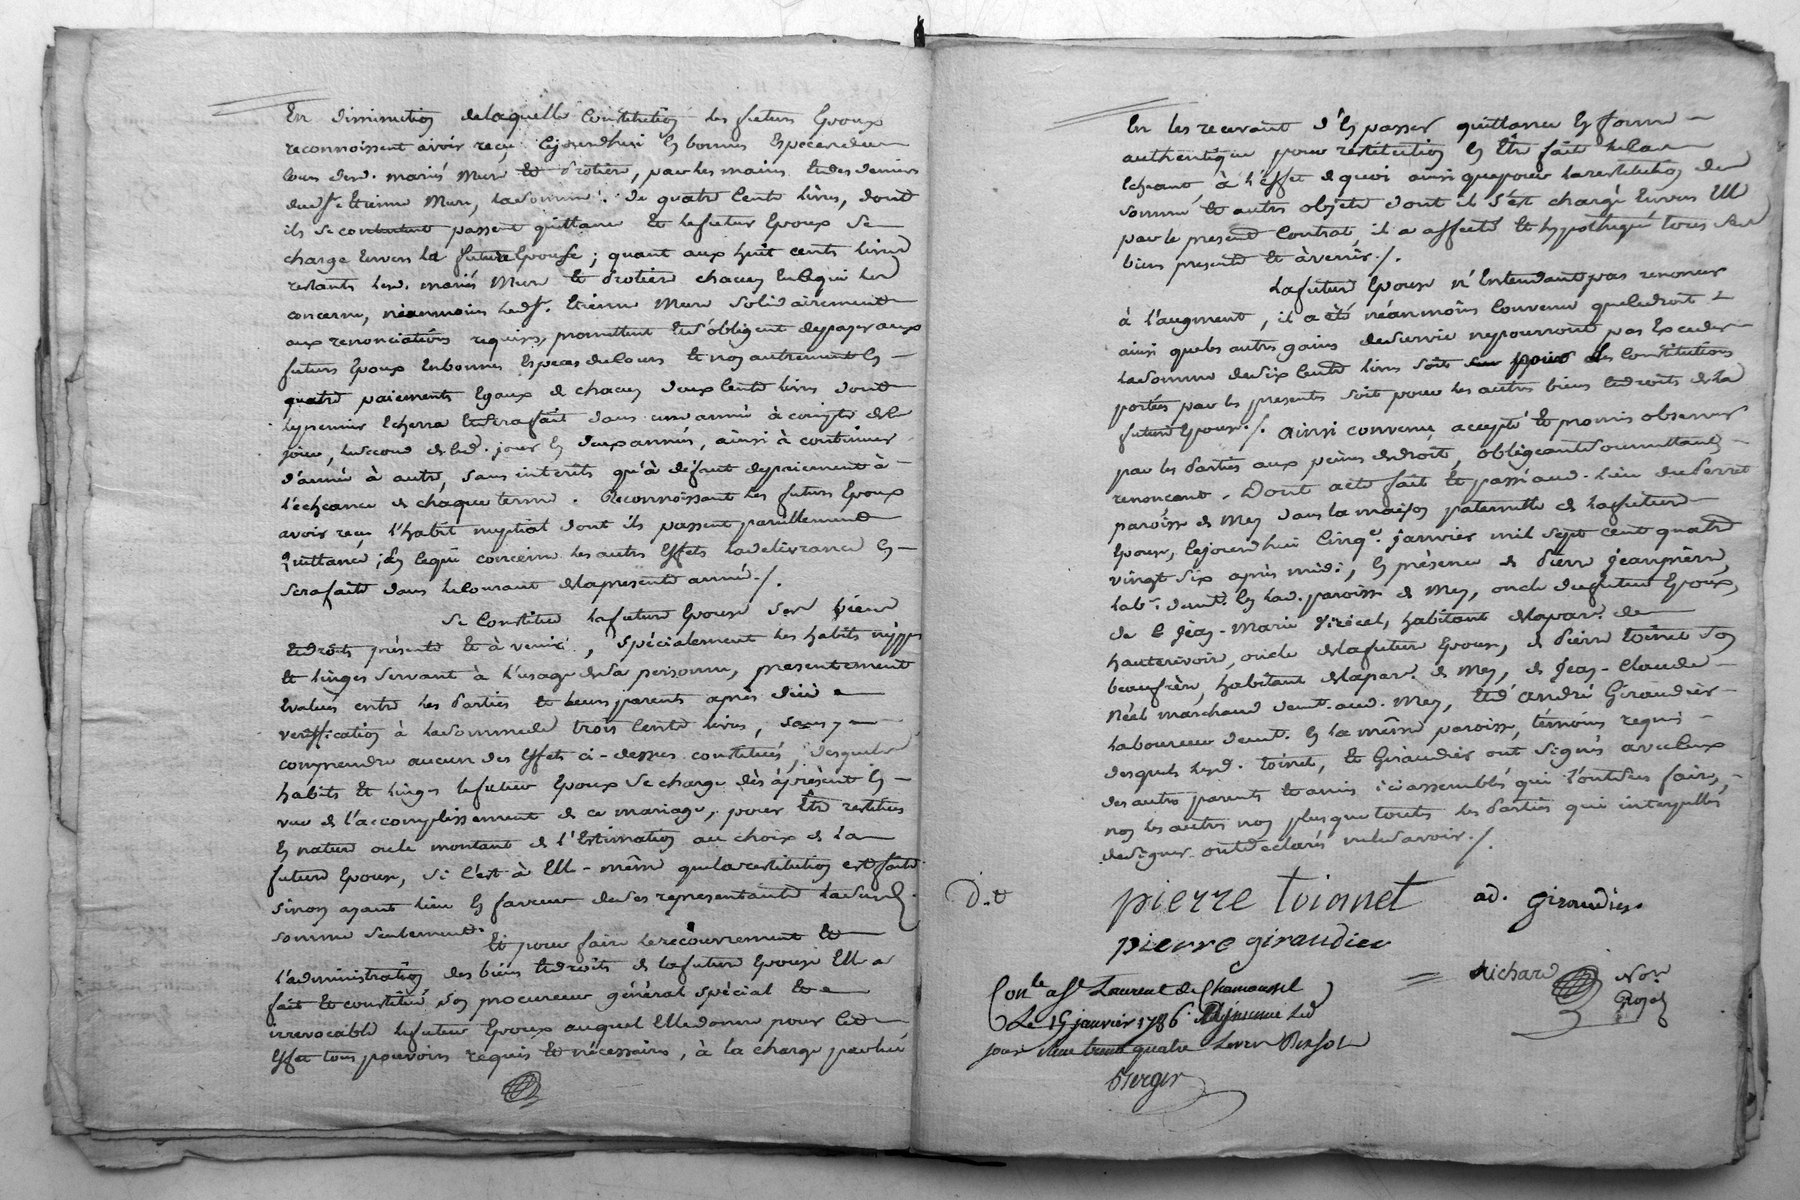 En diminution delaquelle Constitution les futurs Epoux
reconnoissent avoir reçu cejourdhui En bonnes Especes du
Cours desd. mariés Mure et Protiere, par les mains Et des deniers
dud. Sr. Etienne Mure, lasomme de quatre Cents livres, dont
ils se contentent passent quittance Et le futur Epoux Se
charge Envers la future Epouse ; quant aux huit cents livres
restants lesd. mariés Mure Et Protiere chacun En ce qui les
concerne, néanmoins led. Sr. Etienne Mure Solidairement
aux renonciations requises, promettent Et s'obligent depayer aux
futurs Epoux En bonnes Especes du Cours Et non autrement En
quatre paiements Egaux de chacun deux Cents livres dont
le premier Echerra Et Sera fait dans une année à compter de ce
jour, le second deled. jour En deux années, ainsi à continuer
d'année à autre, sans interets qu'à defaut depaiement à
l'echeance de chaque terme. Reconnoissant les futurs Epoux
avoir reçu l'habit nuptial dont ils passent pareillement
quittance ; En cequi concerne les autres Effets la delivrance En
Sera faite dans le Courant de la presente année ./.
Se Constitue la future Epouse Ses biens
Et droits présents Et à venir, spécialement les habits nippes
Et linges Servant à l'usage de Sa personne, presentement
Evalués entre les Parties Et leurs parents après due
verification à la Somme de trois Cents livres, sans y
comprendre aucun des Effets ci-dessus constitués, desquels
habits Et linges le futur Epoux Se charge dès àprésent En
vue de l'accomplissement de ce mariage, pour Etre restitués
En nature ou le montant de l'Estimation au choix de la
future Epouse, si C'est à Elle-même que la restitution est faite
sinon ayant lieu En faveur de Ses representants la Susd.
somme seulement.
Et pour faire le recouvrement Et
l'administration des biens Et droits de la future Epouse Elle a
fait Et constitué Son procureur général spécial Et
irrevocable le futur Epoux auquel Elle donne pour led.
Effet tous pouvoirs requis Et nécessaires, à la charge par lui
En les recevant d'En passer quittance En forme
authentique pour restitution En Etre faite le Cas
Echeant à l'effet de quoi ainsi que pour la restitution des
sommes Et autres objets dont il S'est chargé Envers Elle
par le present Contrat, il a affecté Et hypothéqué tous Ses
biens presents Et à venir ./.
La future Epouse n'Entendant pas renoncer
à l'augment, il a été néanmoins Convenu que ledroit
ainsi que les autres gains de Survie ne pourront pas Exceder
la Somme de Six Cents livres soit pour les Constitutions
portées par les presentes soit pour les autres biens Et droits de la
future Epouse ./. Ainsi convenu, accepté Et promis observer
par les Parties aux peines de droit, obligeant Soumettant
renonçant. Dont acte fait Et passé aud. lieu du
paroisse de Mey dans la maison paternelle de la future
Epouse, Cejourdhui Cinqe. janvier mil Sept Cent quatre
vingt Six après midi, En présence de Pierre Jeanpierre,
habt. demt. En lad. paroisse de Mey, oncle du futur Epoux,
de Jean-Marie habitant de la par. de
hauterivoir, oncle de la future Epouse, de Pierre Toinet Son
beaufrère, habitant de la par. de Mey, de Jean-Claude
Néel marchand demt. aud. Mey, Et d'André Giraudier
laboureur demt. En la même paroisse, témoins requis
desquels lesd. Toinet, Et Giraudier ont signés avec Eux
des autres parents Et amis ici assemblés qui l'ont Su faire,
non les autres non plus que toutes les Parties qui interpellés
de Signer ont declarés ne le Savoir ./.
pierre toinnet ad. giraudier.
pierre giraudier
Richard Nore.
Conle. a St Laurent de Chamousset
Le 15 janvier 1786
jour trente quatre
Berger